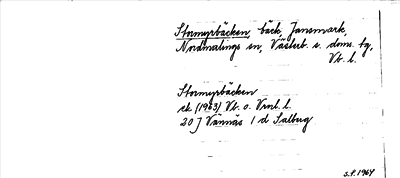 Stormyrbäcken, bäck, Jansmark,
Nordmalings sn, Västerb. s. doms. tg,
Vb. l.
Stormyrbäcken
ek (1963) Vb. o. Vrnl. l.
20 J Vännäs 1 d Salberg
S.F. 1964